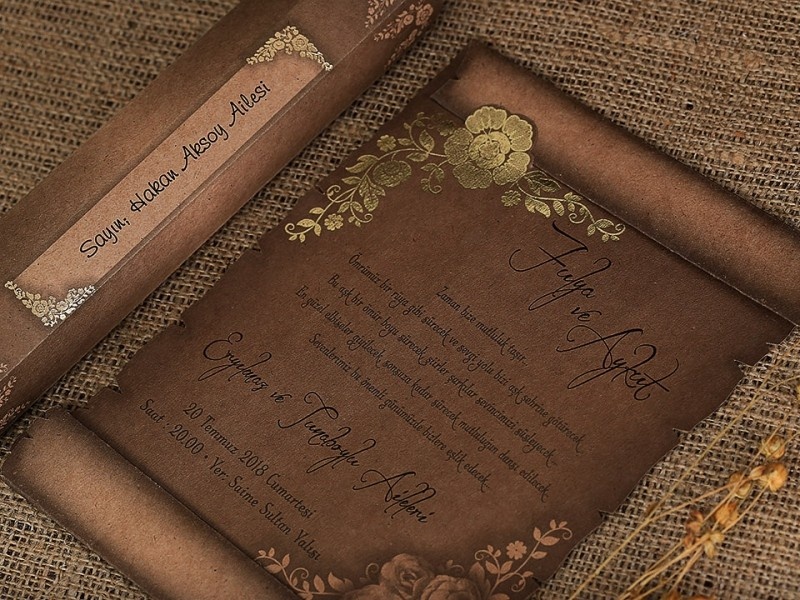 Sayın, Hakan Aksoy Ailesi
Fulya
ve
Aykut
Zaman bize mutluluk taşır...
Ömrümüz bir rüya gibi sürecek ve sevgi yolu bizi aşk şehrine götürecek
Bu aşk bir ömür boyu sürecek şiirler şarkılar sevincimizi süsleyecek...
En güzel elbiseler giyilecek sonsuza kadar sürecek mutluluğun dansı edilecek
Sevenlerimiz bu önemli günümüzde bizlere eşlik edecek
Eryılmaz ve Tunaboylu Aileleri
20 Temmuz 2018 Cumartesi
Saat - 20.00 • Yer: Saime Sultan Yalısı